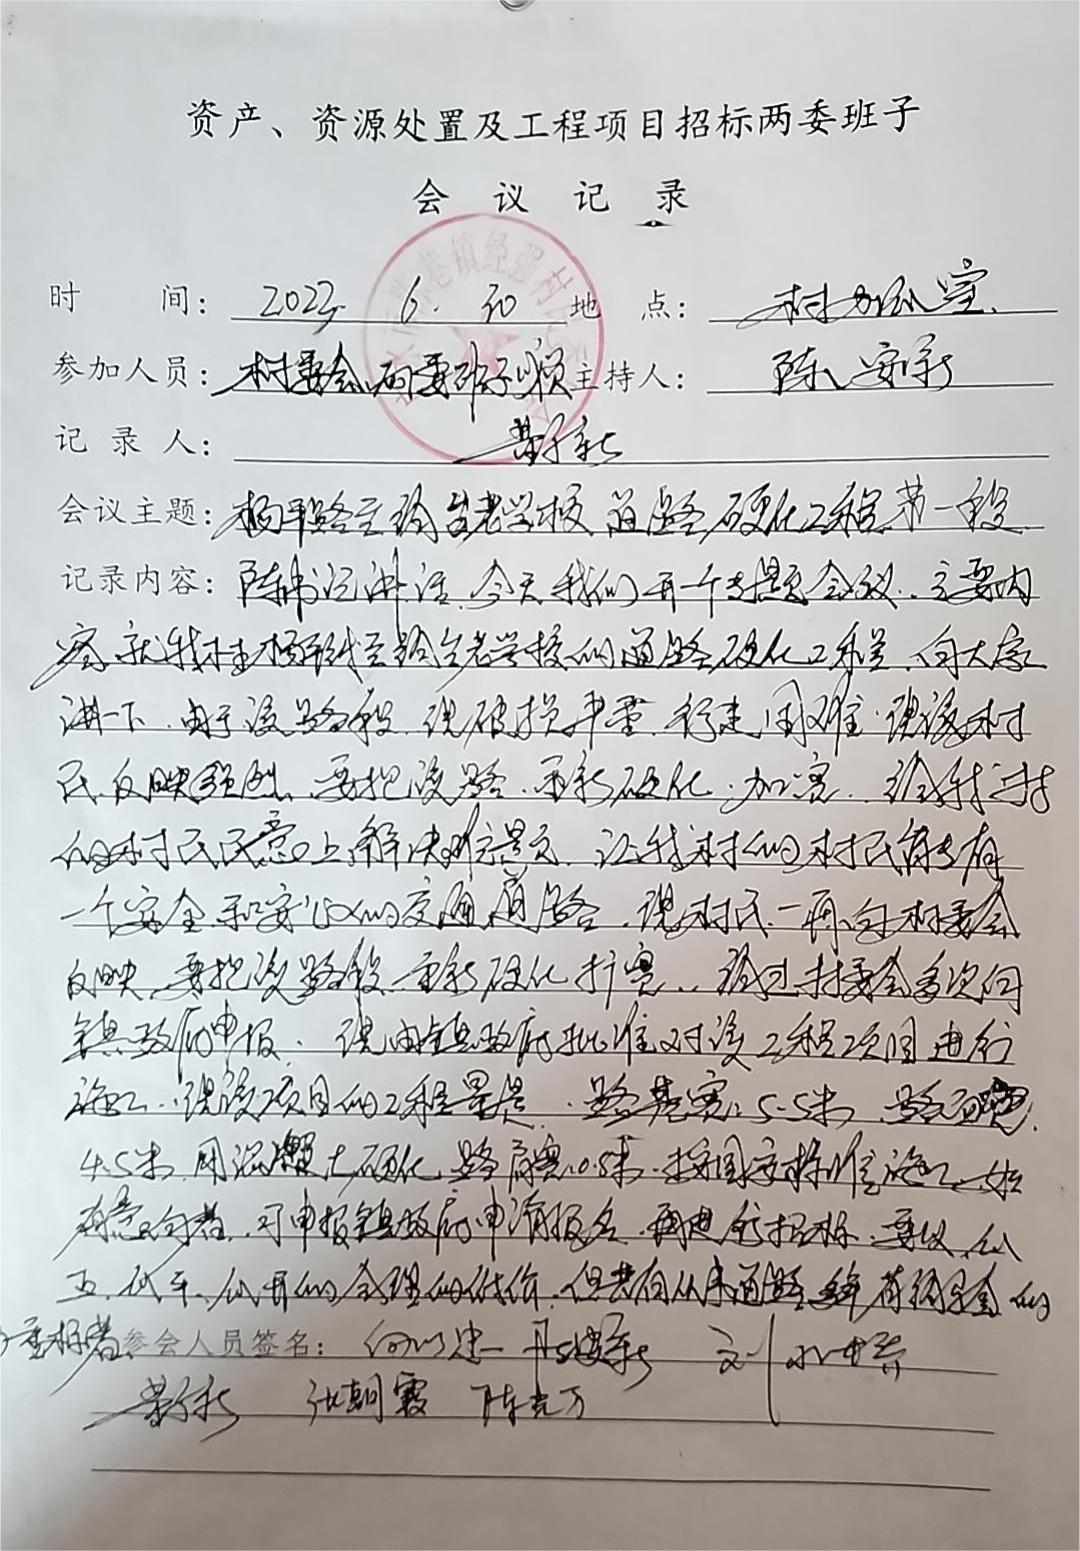 资产、资源处置及工程项目招标两委班子
会 议 记 录
时 间： 2022. 6. 30 地 点： 村办公室.
参加人员：村委会两委班子成员 主持人： 陈安新
记 录 人：
会议主题：杨平路至 老学校道路硬化工程第一段
记录内容：陈书记讲话.今天我们开一个专题会议..主要内
容.就我村杨平线至 老学校的道路硬化工程.向大家
讲一下.由于该路段.现破损严重.行走困难.现该村
民反映强烈.要把该路.重新硬化.加宽.给我村
的村民民意上解决难题.让我村的村民有
一个安全和安心的交通道路.现村民一再向村委会
反映.要把该路段重新硬化扩宽..经过村委会多次向
镇政府申报.现由镇政府批准对该工程项目进行
施工.现该项目的工程量是.路基宽:5.5米.路面宽:
4.5米.用混凝土硬化.路肩宽:0.5米.按国家标准施工.如
有意向者.可申报镇政府申请报名.再进行招标.要以公
正.公平.公开的合理的低价.但共有从事道路 有经验的
中标者.参会人员签名： 刘
张朝霞 陈克万